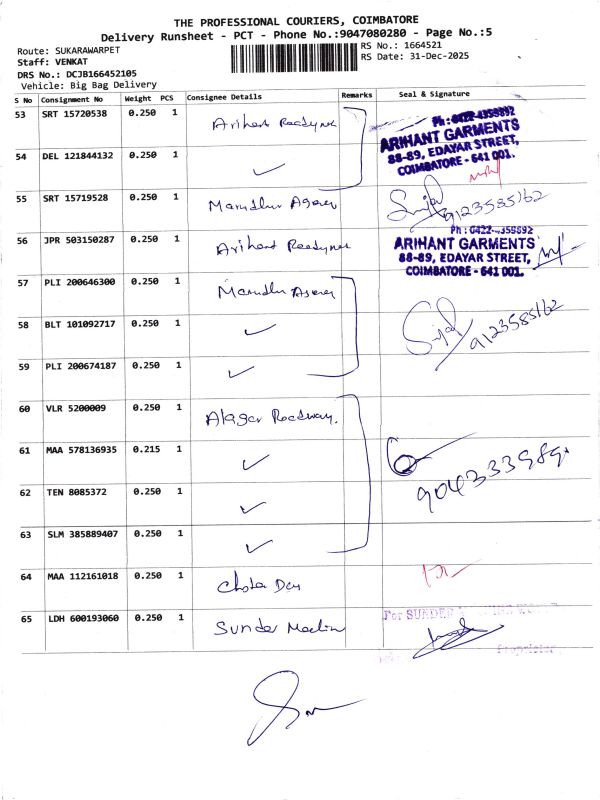 THE PROFESSIONAL COURIERS, COIMBATORE
Delivery Runsheet - PCT - Phone No.:9047080280 - Page No.:5
Route: SUKARAWARPET
RS No.: 1664521
Staff: VENKAT
RS Date: 31-Dec-2025
DRS No.: DCJB166452105
Vehicle: Big Bag Delivery
S No Consignment No Weight PCS Consignee Details Remarks Seal & Signature
53 SRT 15720538 0.250 1 Arihant Readymer
Ph : 0422-4355892
ARIHANT GARMENTS
88-89, EDAYAR STREET,
COIMBATORE - 641 001.
54 DEL 121844132 0.250 1 ✓
55 SRT 15719528 0.250 1 9123585162
56 JPR 503150287 0.250 1 Arihant Readymer
Ph : 0422-4355892
ARIHANT GARMENTS
88-89, EDAYAR STREET,
COIMBATORE - 641 001.
57 PLI 200646300 0.250 1
58 BLT 101092717 0.250 1 ✓ 9123585162
59 PLI 200674187 0.250 1 ✓
60 VLR 5200009 0.250 1 Alagar Roadway.
61 MAA 578136935 0.215 1 ✓
62 TEN 8085372 0.250 1 ✓
63 SLM 385889407 0.250 1 ✓
64 MAA 112161018 0.250 1 Chota Dey
65 LDH 600193060 0.250 1 Sunder
For SUNDER
Proprietor